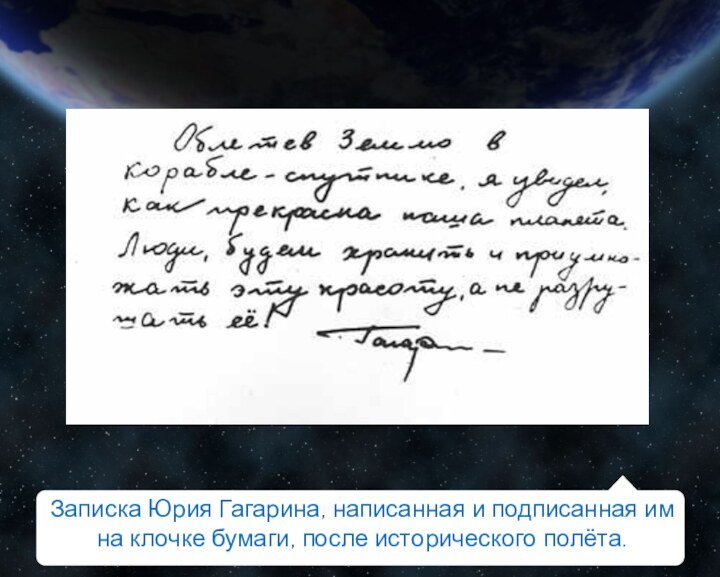 Облетев Землю в
корабле-спутнике, я увидел,
как прекрасна наша планета.
Люди, будем хранить и приумно-
жать эту красоту, а не разру-
шать её!
Гагарин
Записка Юрия Гагарина, написанная и подписанная им
на клочке бумаги, после исторического полёта.